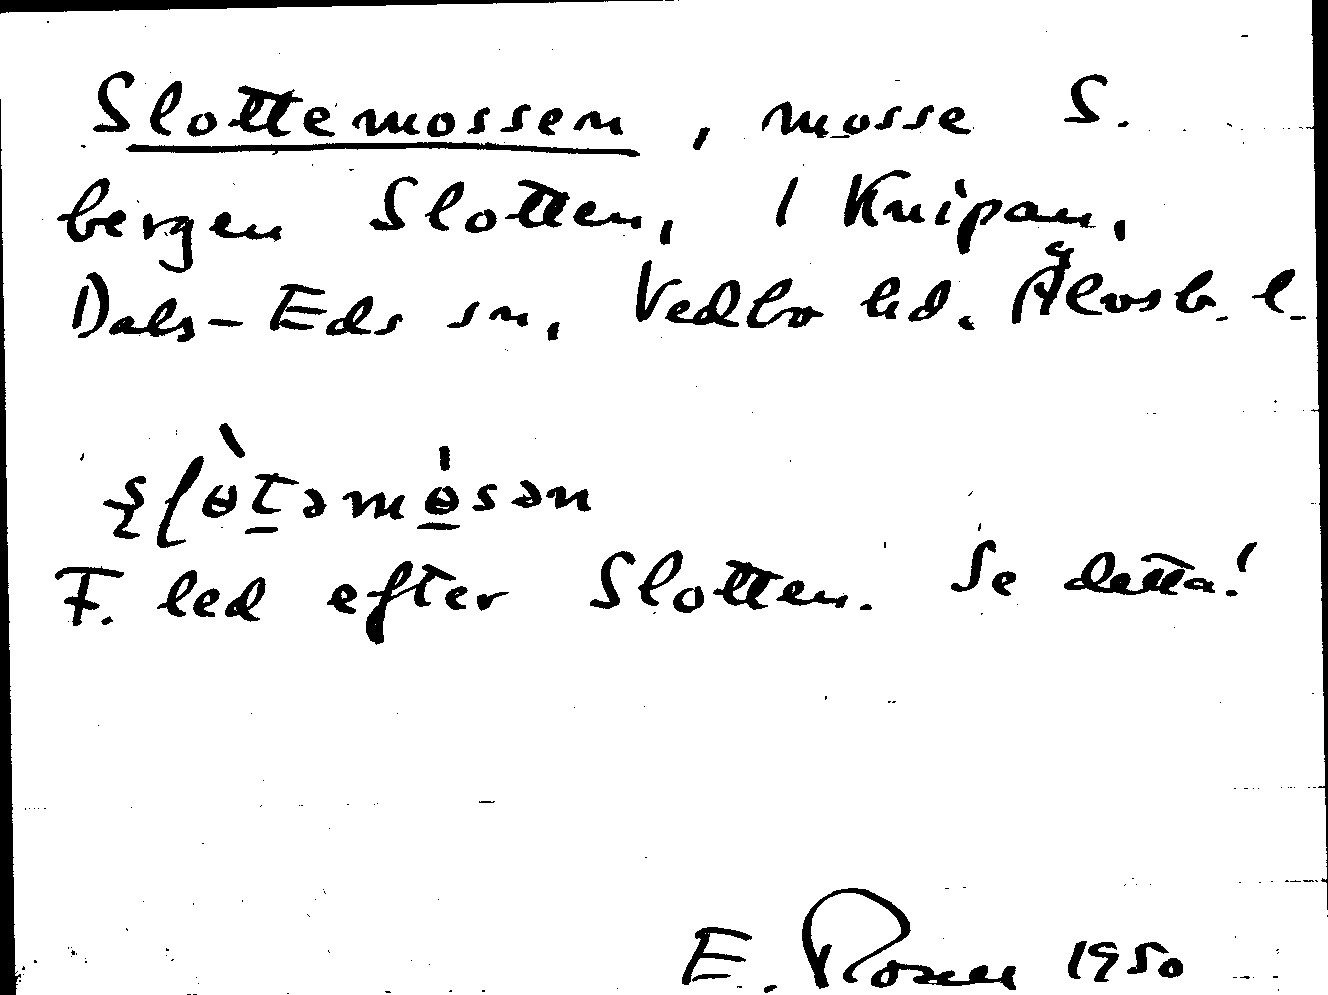 Slottemossen, mosse S.
bergen Slotten, 1 Knipan,
Dals-Eds sn, Vedbo hd. Älvsb. l.
F. led efter Slotten. Se detta!
E. Rosén 1950